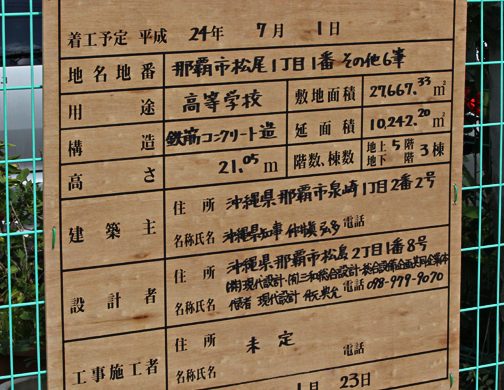 着工予定 平成 24年 7月 1日
地名地番 那覇市松尾1丁目1番 その他6筆
用途 高等学校 敷地面積 27,667.33㎡
構造 鉄筋コンクリート造 延面積 10,242.20㎡
高さ 21.05m 階数、棟数 地上5階 地下 階 3棟
建築主 住所 沖縄県那覇市泉崎1丁目2番2号
名称氏名 沖縄県知事 仲井眞 弘多 電話
設計者 住所 沖縄県那覇市松島2丁目1番8号
(株)現代設計・(有)三和総合設計・総合設備企画共同企業体
名称氏名 代表者 現代設計 電話 098-979-9070
工事施工者 住所 未定
名称氏名 電話
1月 23日